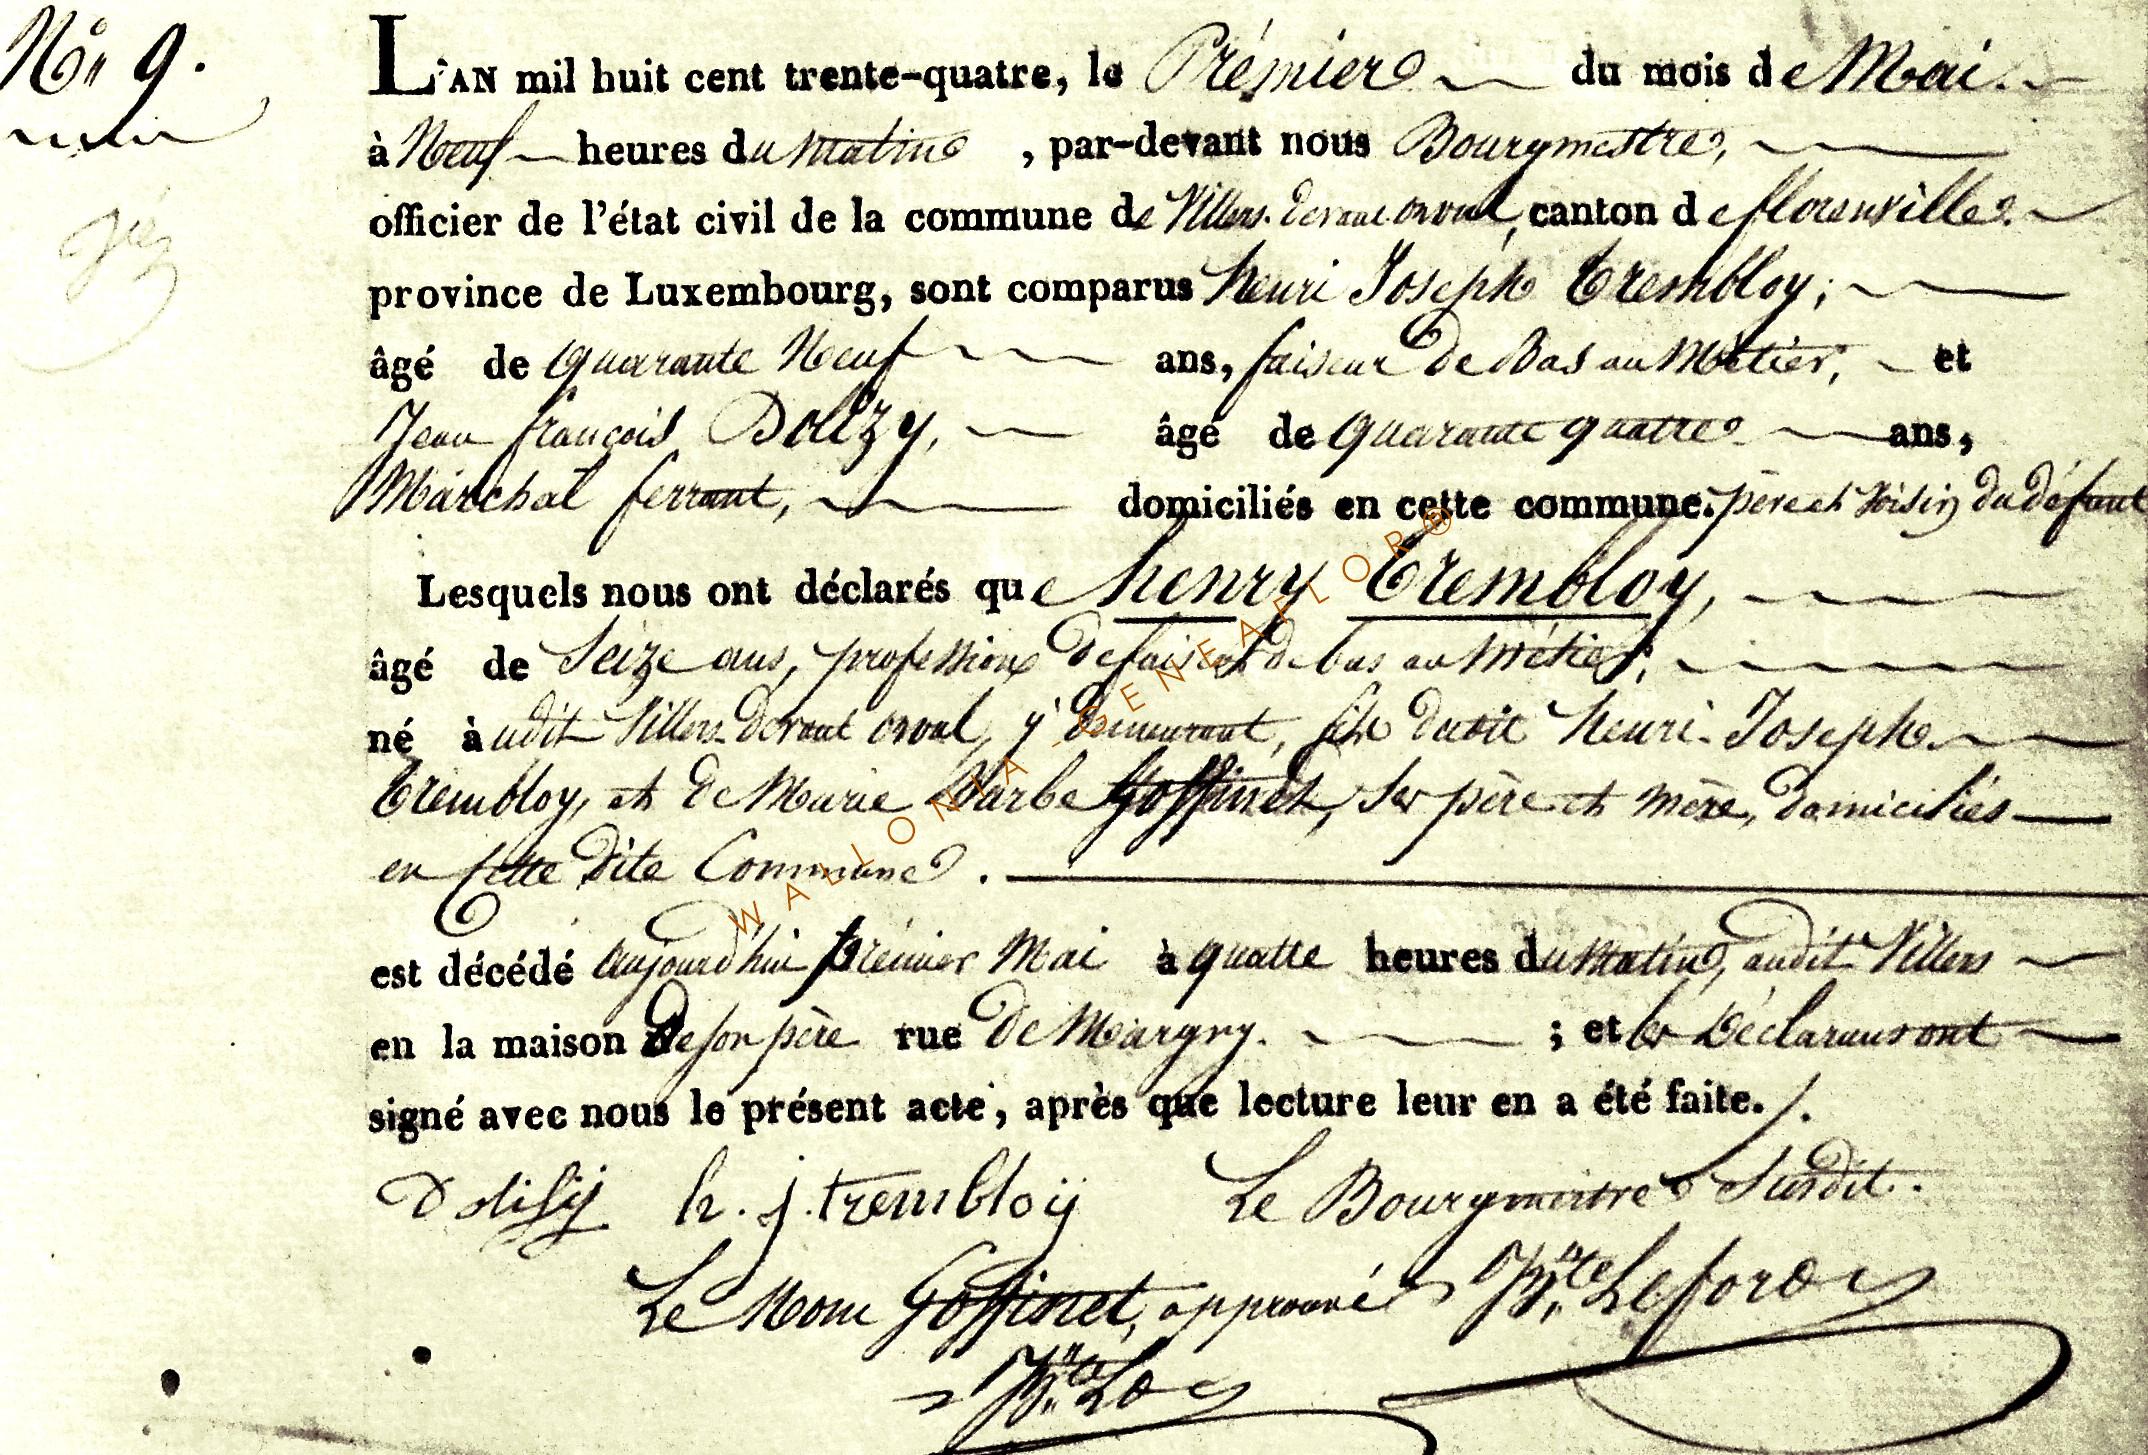 N° 9.
L'AN mil huit cent trente-quatre, le Prémier du mois de Mai.
à Neuf heures du matin, par-devant nous Bourgmestre,
officier de l'état civil de la commune de Villers-devant orval, canton de florenville.
province de Luxembourg, sont comparus henri Joseph Trembloy;
âgé de quarante Neuf ans, faiseur de Bas au Métier, et
Jean françois Dolizy, âgé de quarante quatre ans,
Maréchal ferrant, domiciliés en cette commune. père et voisin du défunt
Lesquels nous ont déclarés que henry Trembloy,
âgé de Seize ans, profession de faiseur de bas au métier,
né à udit Villers-devant orval, y demeurant, fils dudit henri-Joseph
Trembloy, et de Marie Barbe Goffinet, ses père et mère, domiciliés
en cette dite Commune.
est décédé aujourd'hui prémier Mai à quatre heures du matin, audit Villers
en la maison de son père rue de Margny. ; et les Déclarans ont
signé avec nous le présent acte, après que lecture leur en a été faite.
Dolisy h. j. trembloÿ Le Bourgmestre Susdit.
Le Nom Goffinet, approuvé
WALLONIA - GENEAFLOR®